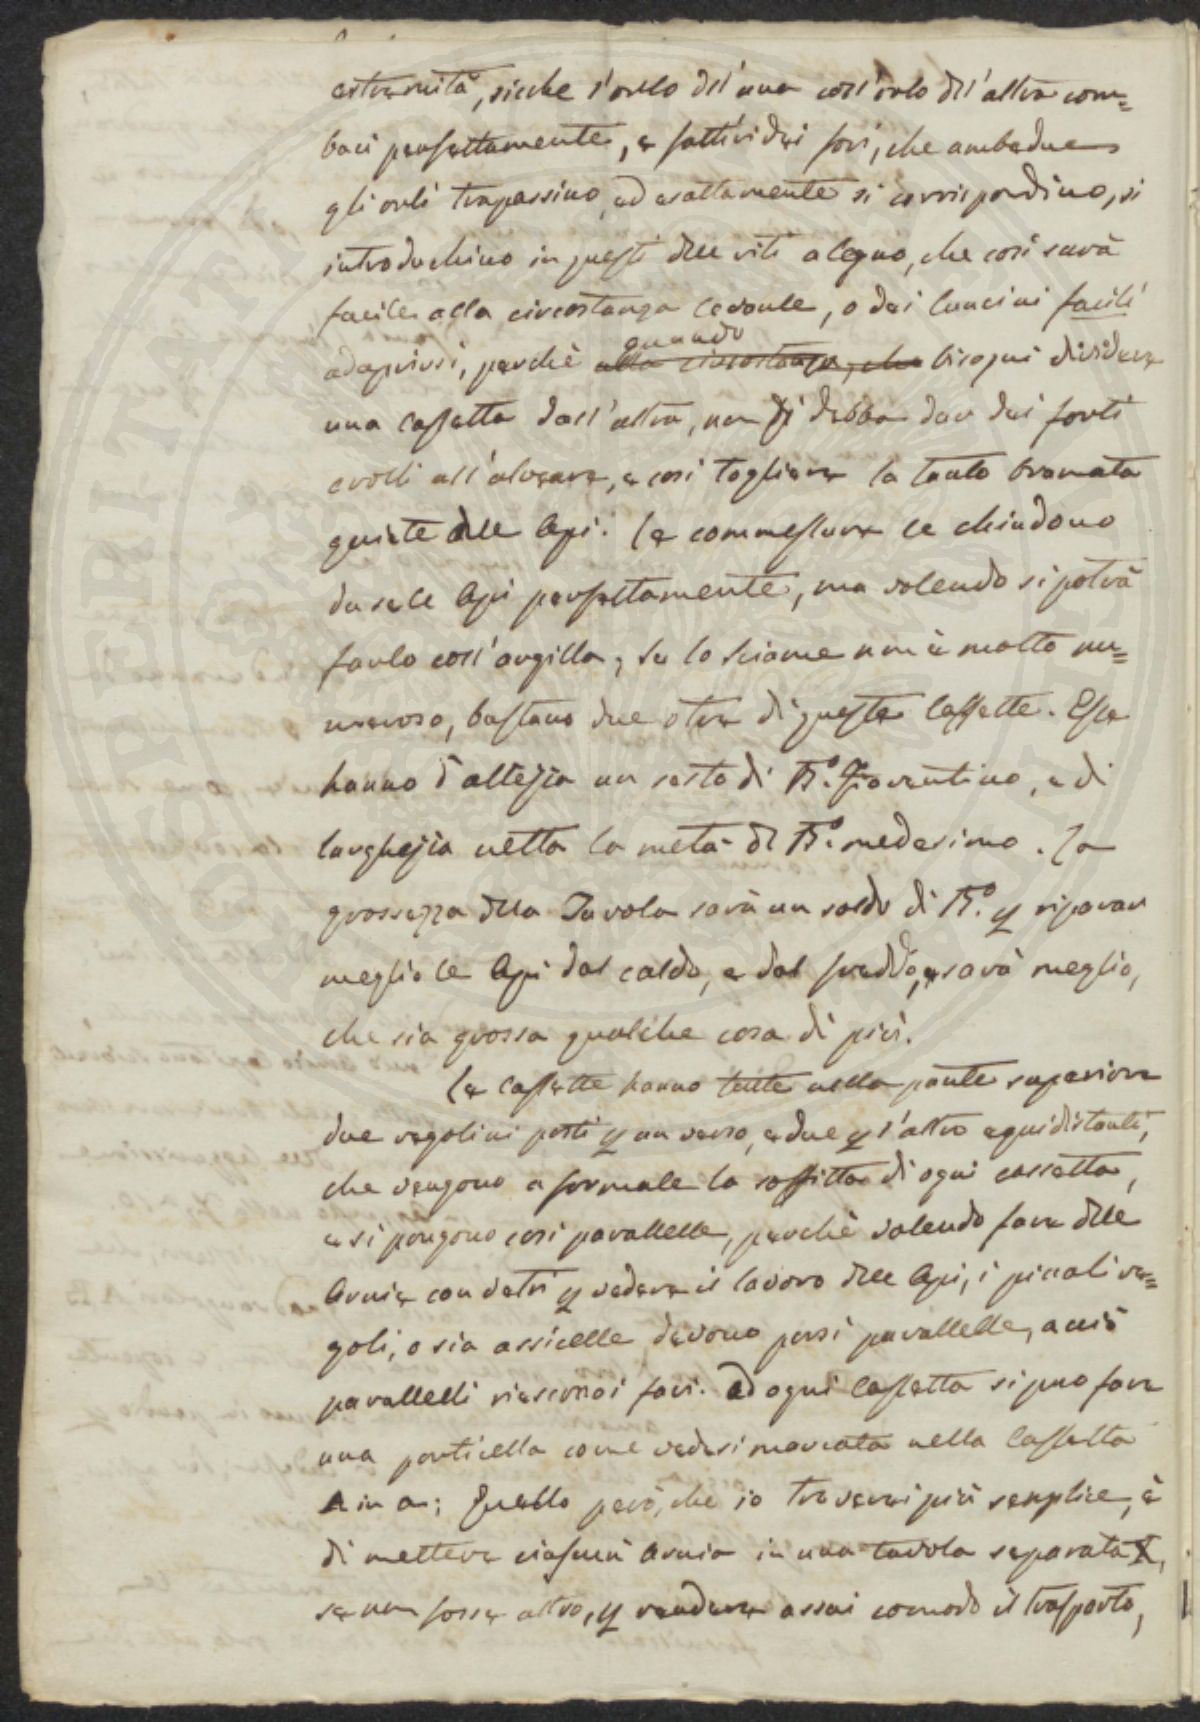 estremità, sicche l'orlo dell'una coll'orlo dell'altra com=
baci perfettamente, e fattivi dei fori, che ambedue
gli orli trapassino, ed esattamente si corrispondino, si
introduchino in questi delle viti a legno, che così sarà
facile alla circostanza levarle, o dei lancini facili
ad aprirsi, perchè quando
alla circostanza, che bisogni dividere
una cassetta dall'altra, non si debba dar dei forti
crolli all'alveare, e così togliere la tanto bramata
quiete delle Api. Le commessure le chiudono
da se le Api perfettamente, ma volendo si potrà
farlo coll'argilla; Se lo Sciame non è molto nu=
meroso, bastano due o tre di queste Cassette. Esse
hanno d'altezza un sesto di B.º Fiorentino, e di
larghezza netta la metà di B.º medesimo. La
grossezza della Tavola sarà un soldo di B.º p riparar
meglio le Api dal caldo, e dal freddo, e sarà meglio,
che sia grossa qualche cosa di più.
Le Cassette hanno tutte nella parte superiore
due regolini posti p un verso, e due p l'altro equidistanti,
che vengono a formale la soffitta di ogni cassetta,
e si pongono così parallelle, perchè volendo fare delle
Arnie con vetri p vedere il lavoro delle Api, i piccoli re=
goli, o sia assicelle devono porsi parallelle, acciò
parallelli rieschino i favi. Ad ogni Cassetta si può fare
una porticella come vedesi marcata nella Cassetta
A in a; Quello però, che io troverei più semplice, è
di mettere ciascun' Arnia in una tavola separata,
se non fosse altro, p rendere assai comodo il trasporto,